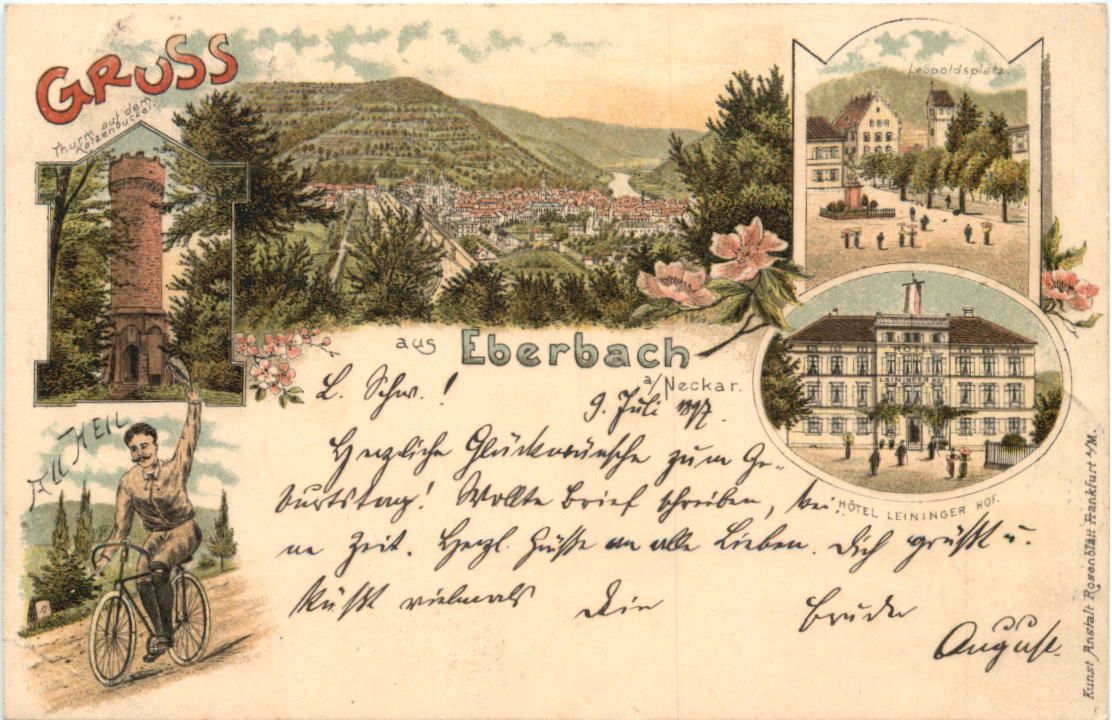 GRUSS
Thurm auf dem
Katzenbuckel.
Leopoldsplatz.
aus Eberbach
a/Neckar.
HOTEL
LEININGER HOF
HÔTEL LEININGER HOF.
All Heil
L. Schw.!
9. Juli 1897.
Herzliche Glückwünsche zum Ge-
burtstag! Wollte Brief schreiben, kei-
ne Zeit. Herzl. Grüße an alle Lieben. Dich grüßt u.
küßt vielmals Dein Bruder
August.
Kunst Anstalt Rosenblatt Frankfurt a/M.